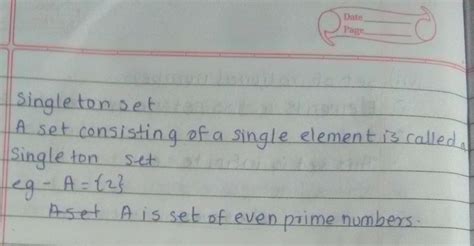 Date
Page
Singleton set
A set consisting of a single element is called a
Singleton set
eg - A = {2}
A set A is set of even prime numbers.